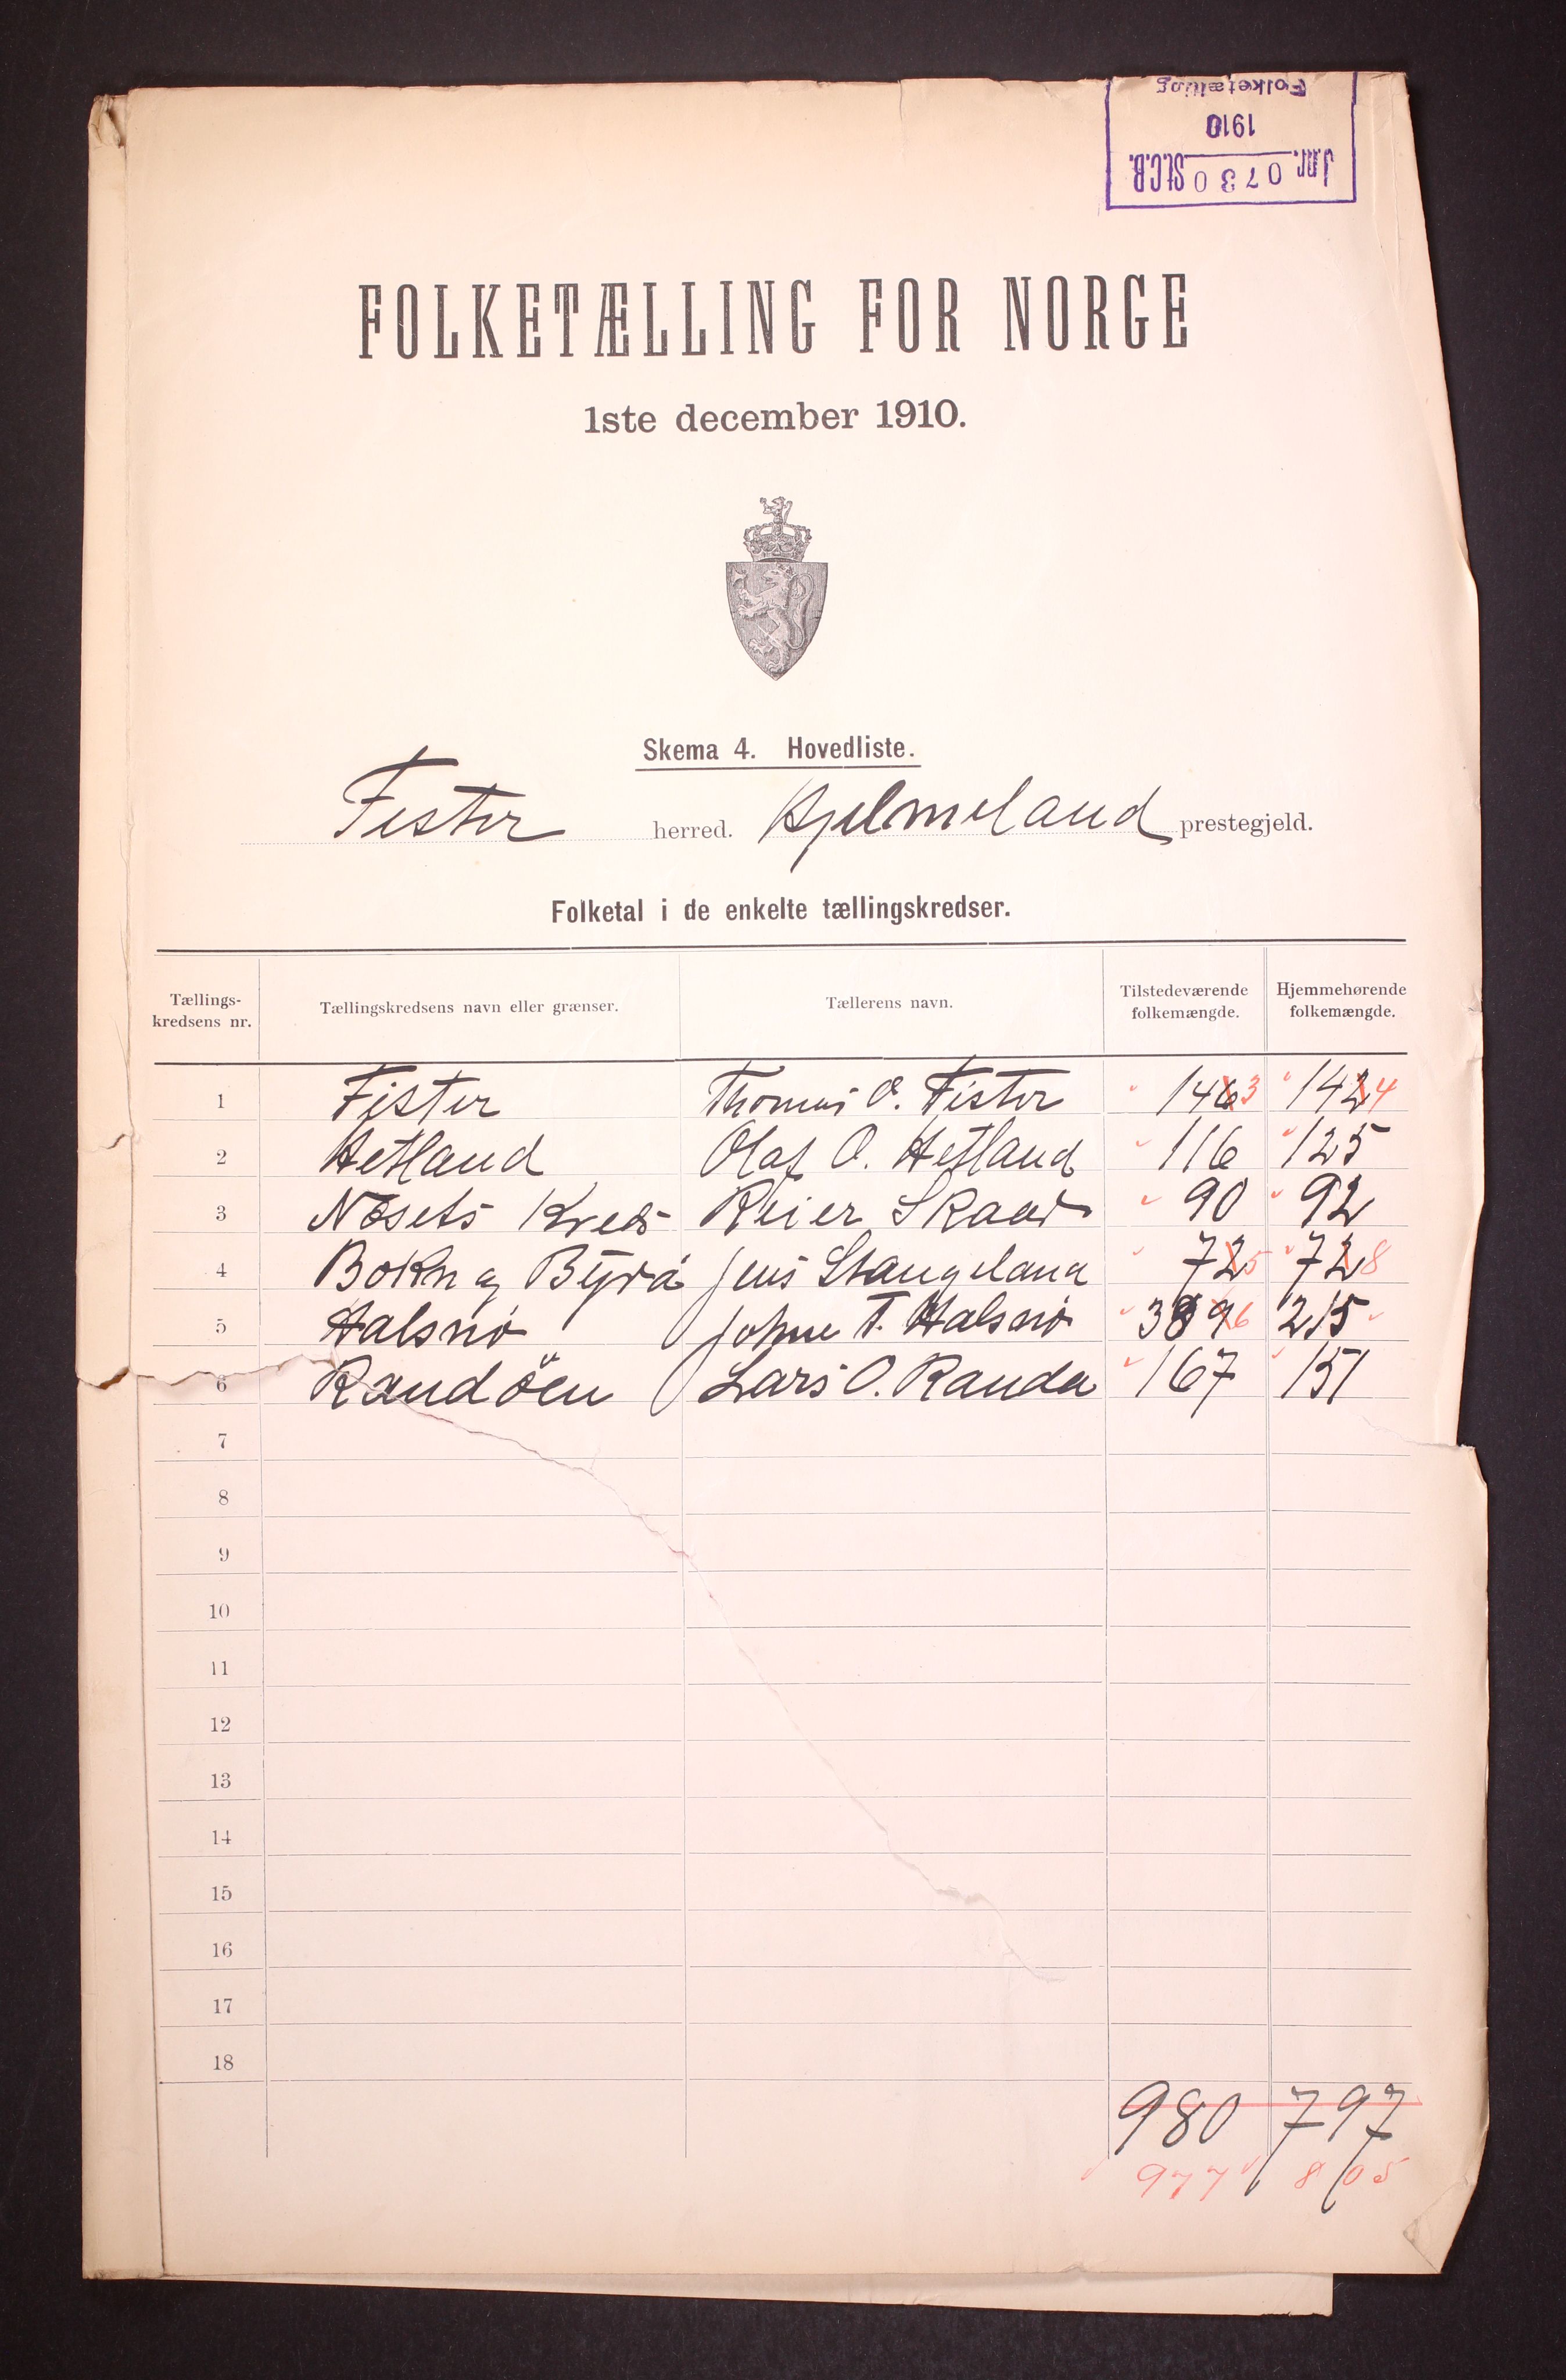 Folketælling
1910
J.nr. 0730 St.C.B.
FOLKETÆLLING FOR NORGE
1ste december 1910.
Skema 4. Hovedliste.
Fister herred. Hjelmeland prestegjeld.
Folketal i de enkelte tællingskredser.
Tællings-kredsens nr. Tællingskredsens navn eller grænser. Tællerens navn. Tilstedeværende folkemængde. Hjemmehørende folkemængde.
1 Fister Thomas O. Fister 1463 1424
2 Hetland Olaf O. Hetland 116 125
3 Nesets Kreds Reier Skaar 90 92
4 Bokn og Byrø Jens Stangeland 725 728
5 Halsnø Johne T. Halsnø 3896 215
6 Randöen Lars O. Randa 167 151
7
8
9
10
11
12
13
14
15
16
17
18
980 797
977 805